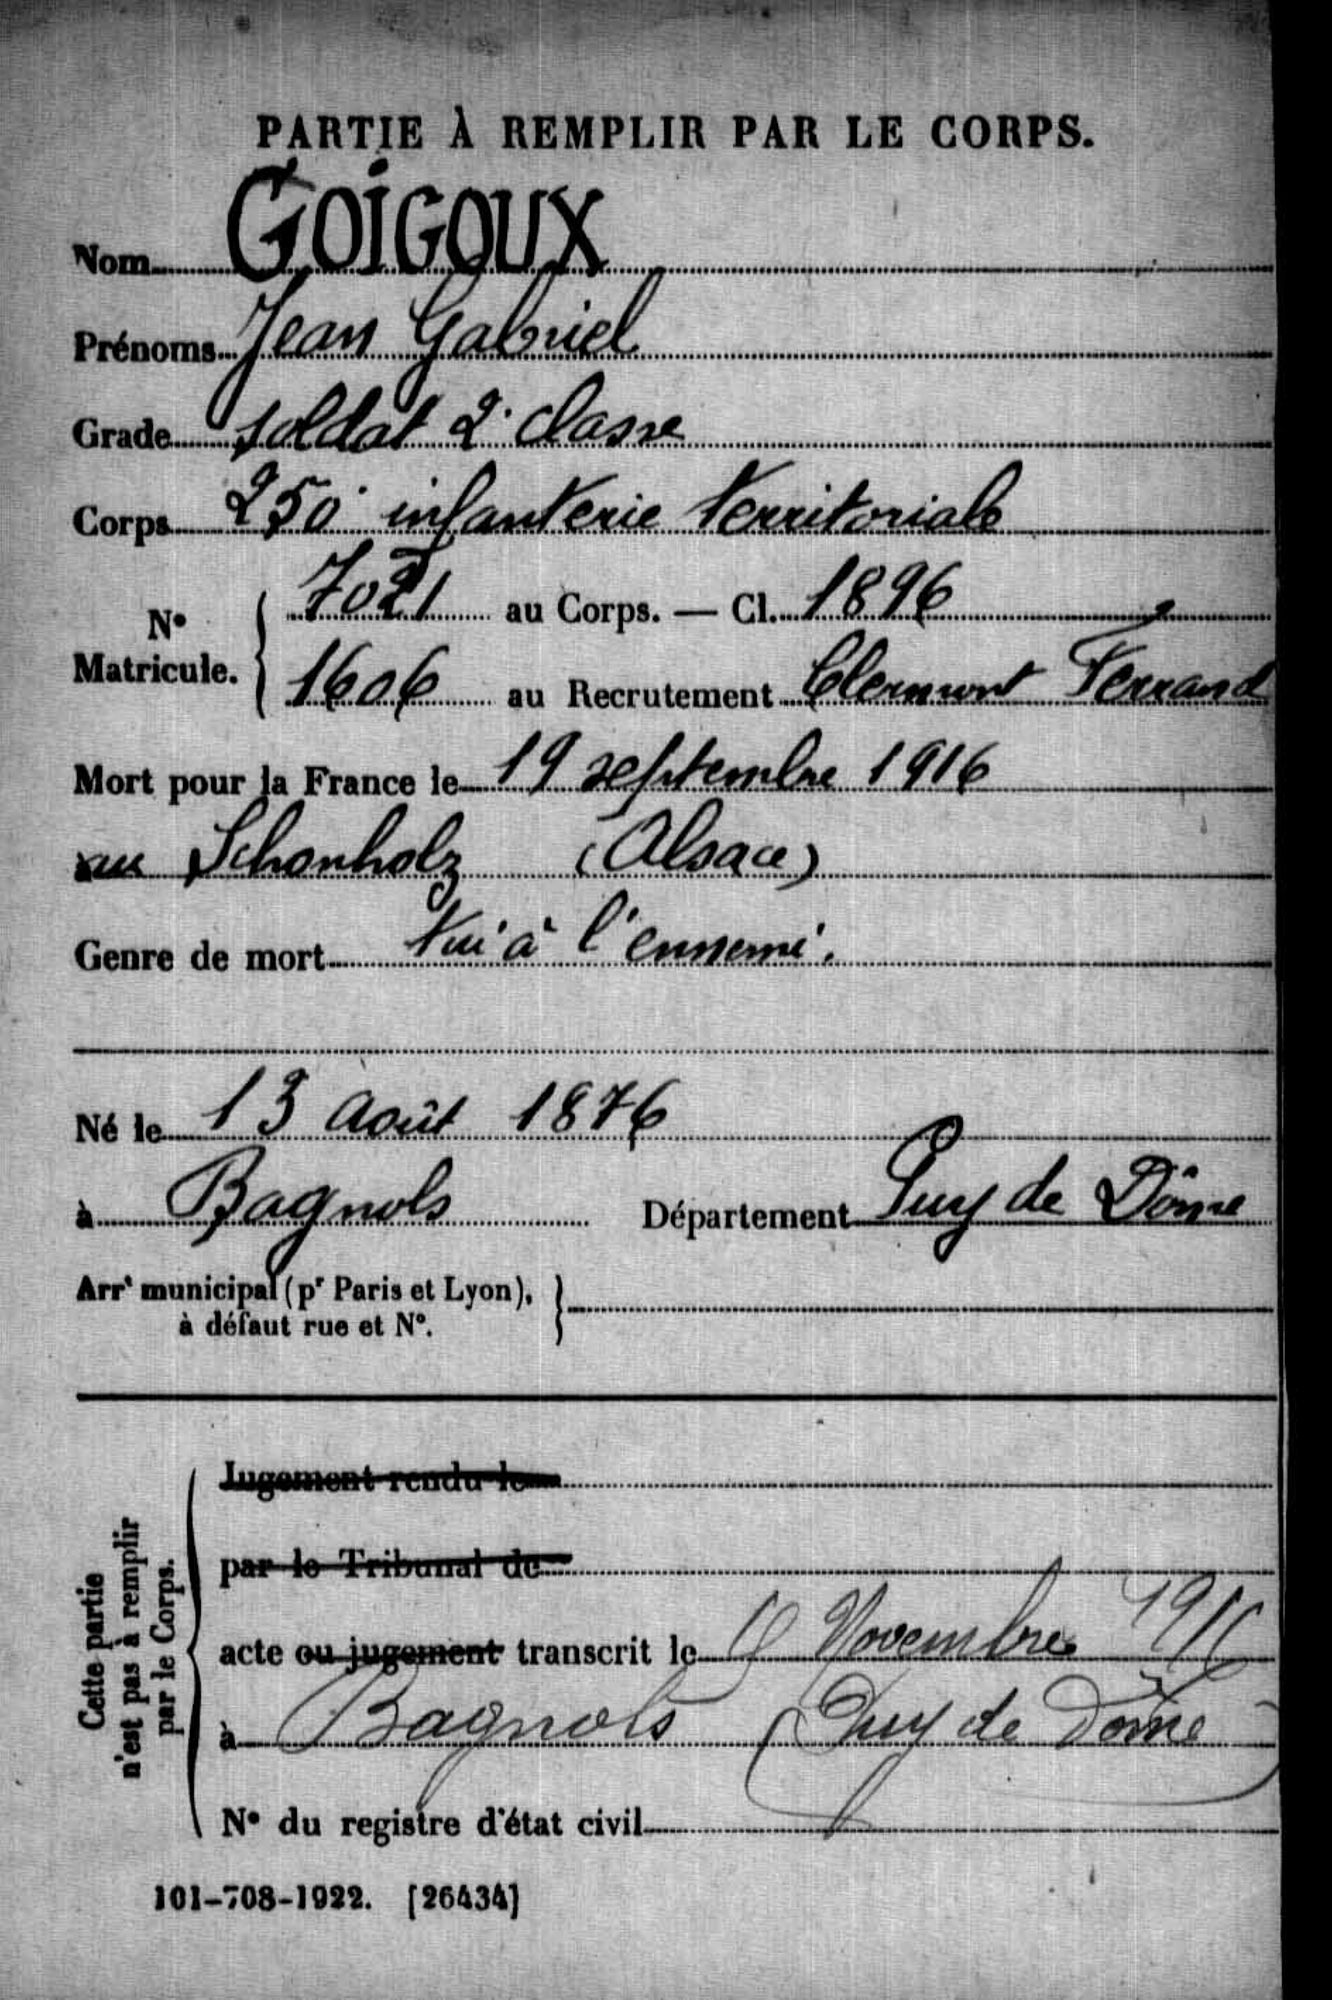 PARTIE À REMPLIR PAR LE CORPS.
Nom GOIGOUX
Prénoms Jean Gabriel
Grade soldat 2e classe
Corps 250e infanterie territoriale
N° Matricule. 7021 au Corps. — Cl. 1896
1606 au Recrutement Clermont Ferrand
Mort pour la France le 19 septembre 1916
au Schonholz (Alsace)
Genre de mort tué à l'ennemi.
Né le 13 août 1876
à Bagnols Département Puy de Dôme
Arrt municipal (pr Paris et Lyon),
à défaut rue et N°.
Cette partie
n'est pas à remplir
par le Corps.
Jugement rendu le
par le Tribunal de
acte ou jugement transcrit le Novembre 1916
à Bagnols (Puy de Dôme
N° du registre d'état civil
101-708-1922. [26434]